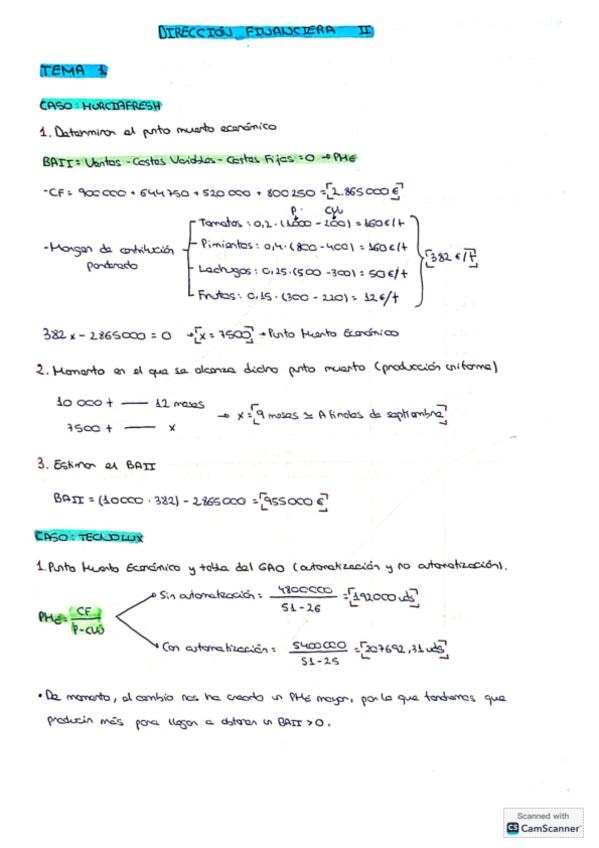 DIRECCIÓN FINANCIERA II
TEMA 1
CASO: MURCIAFRESH
1. Determinar el punto muerto económico
BAII = Ventas - Costes Variables - Costes Fijos = 0 → PME
- CF = 900000 + 644750 + 520000 + 800250 = [2.865000€]
P. CVu
Tomates: 0,2 · (1000 - 200) = 160€/t
- Margen de contribución ponderado
Pimientos: 0,4 · (800 - 400) = 160€/t
[382 €/t]
Lechugas: 0,25 · (500 - 300) = 50€/t
Frutas: 0,15 · (300 - 220) = 12€/t
382x - 2865000 = 0 → [x = 7500] → Punto Muerto Económico
2. Momento en el que se alcanza dicho punto muerto (producción uniforme)
10 000 t — 12 meses
7500 t — x
→ x = [9 meses ≃ A finales de septiembre]
3. Estimar el BAII
BAII = (10000 · 382) - 2865000 = [955000€]
CASO: TECNOLUX
1. Punto Muerto Económico y tabla del GAO (automatización y no automatización).
PME = CF / P - CVu
Sin automatización = 4800000 / 51 - 26 = [192000 uds]
Con automatización = 5400000 / 51 - 25 = [207692,31 uds]
• De momento, el cambio nos ha creado un PME mayor, por lo que tendremos que
producir más para llegar a obtener un BAII > 0.
Scanned with
CS CamScanner